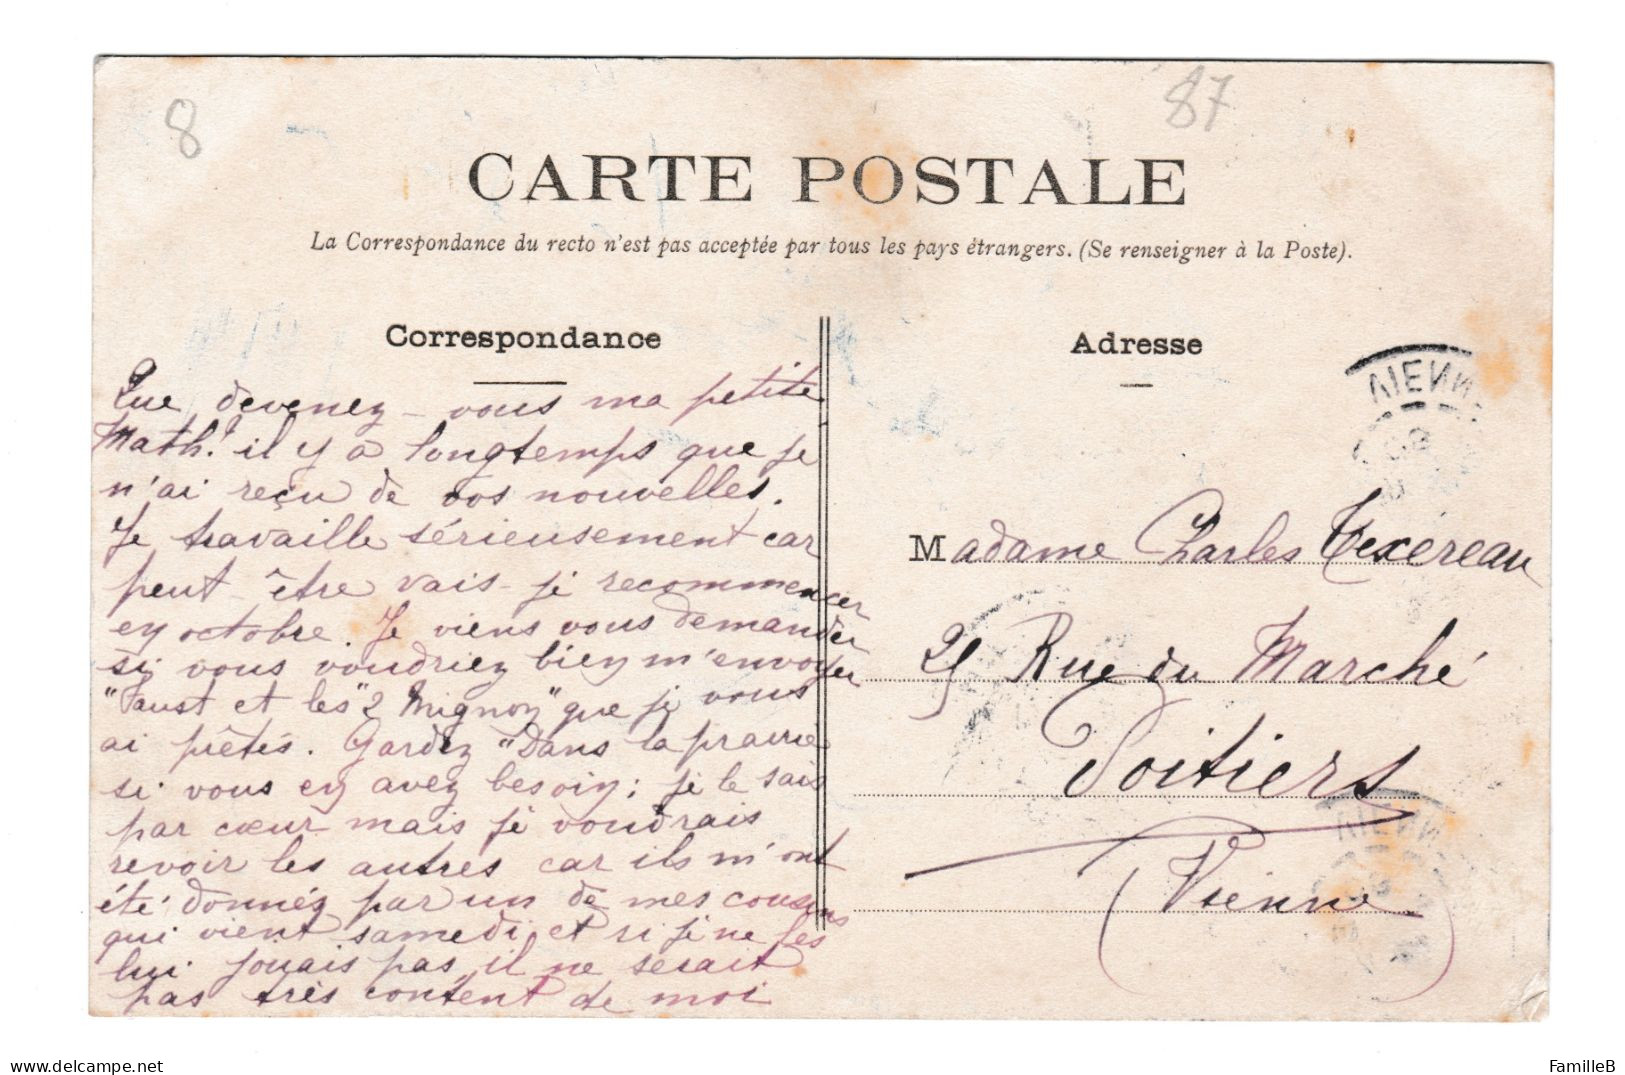 8
87
CARTE POSTALE
La Correspondance du recto n'est pas acceptée par tous les pays étrangers. (Se renseigner à la Poste).
Correspondance
Que devenez-vous ma petite
Math.? il y a longtemps que je
n'ai reçu de vos nouvelles.
Je travaille sérieusement car
peut-être vais-je recommencer
en octobre. Je viens vous demander
si vous voudriez bien m'envoyer
"Faust et les "2 Mignon" que je vous
ai prêtés. Gardez "Dans la prairie
si vous en avez besoin; je le sais
par cœur mais je voudrais
revoir les autres car ils m'ont
été donnés par un de mes cousins
qui vient samedi et si je ne les
lui jouais pas, il ne serait
pas très content de moi
Adresse
VIENN
Madame Charles Texereau
25 Rue du Marché
Poitiers
VIENN
Vienne
delcampe.net
FamilleB